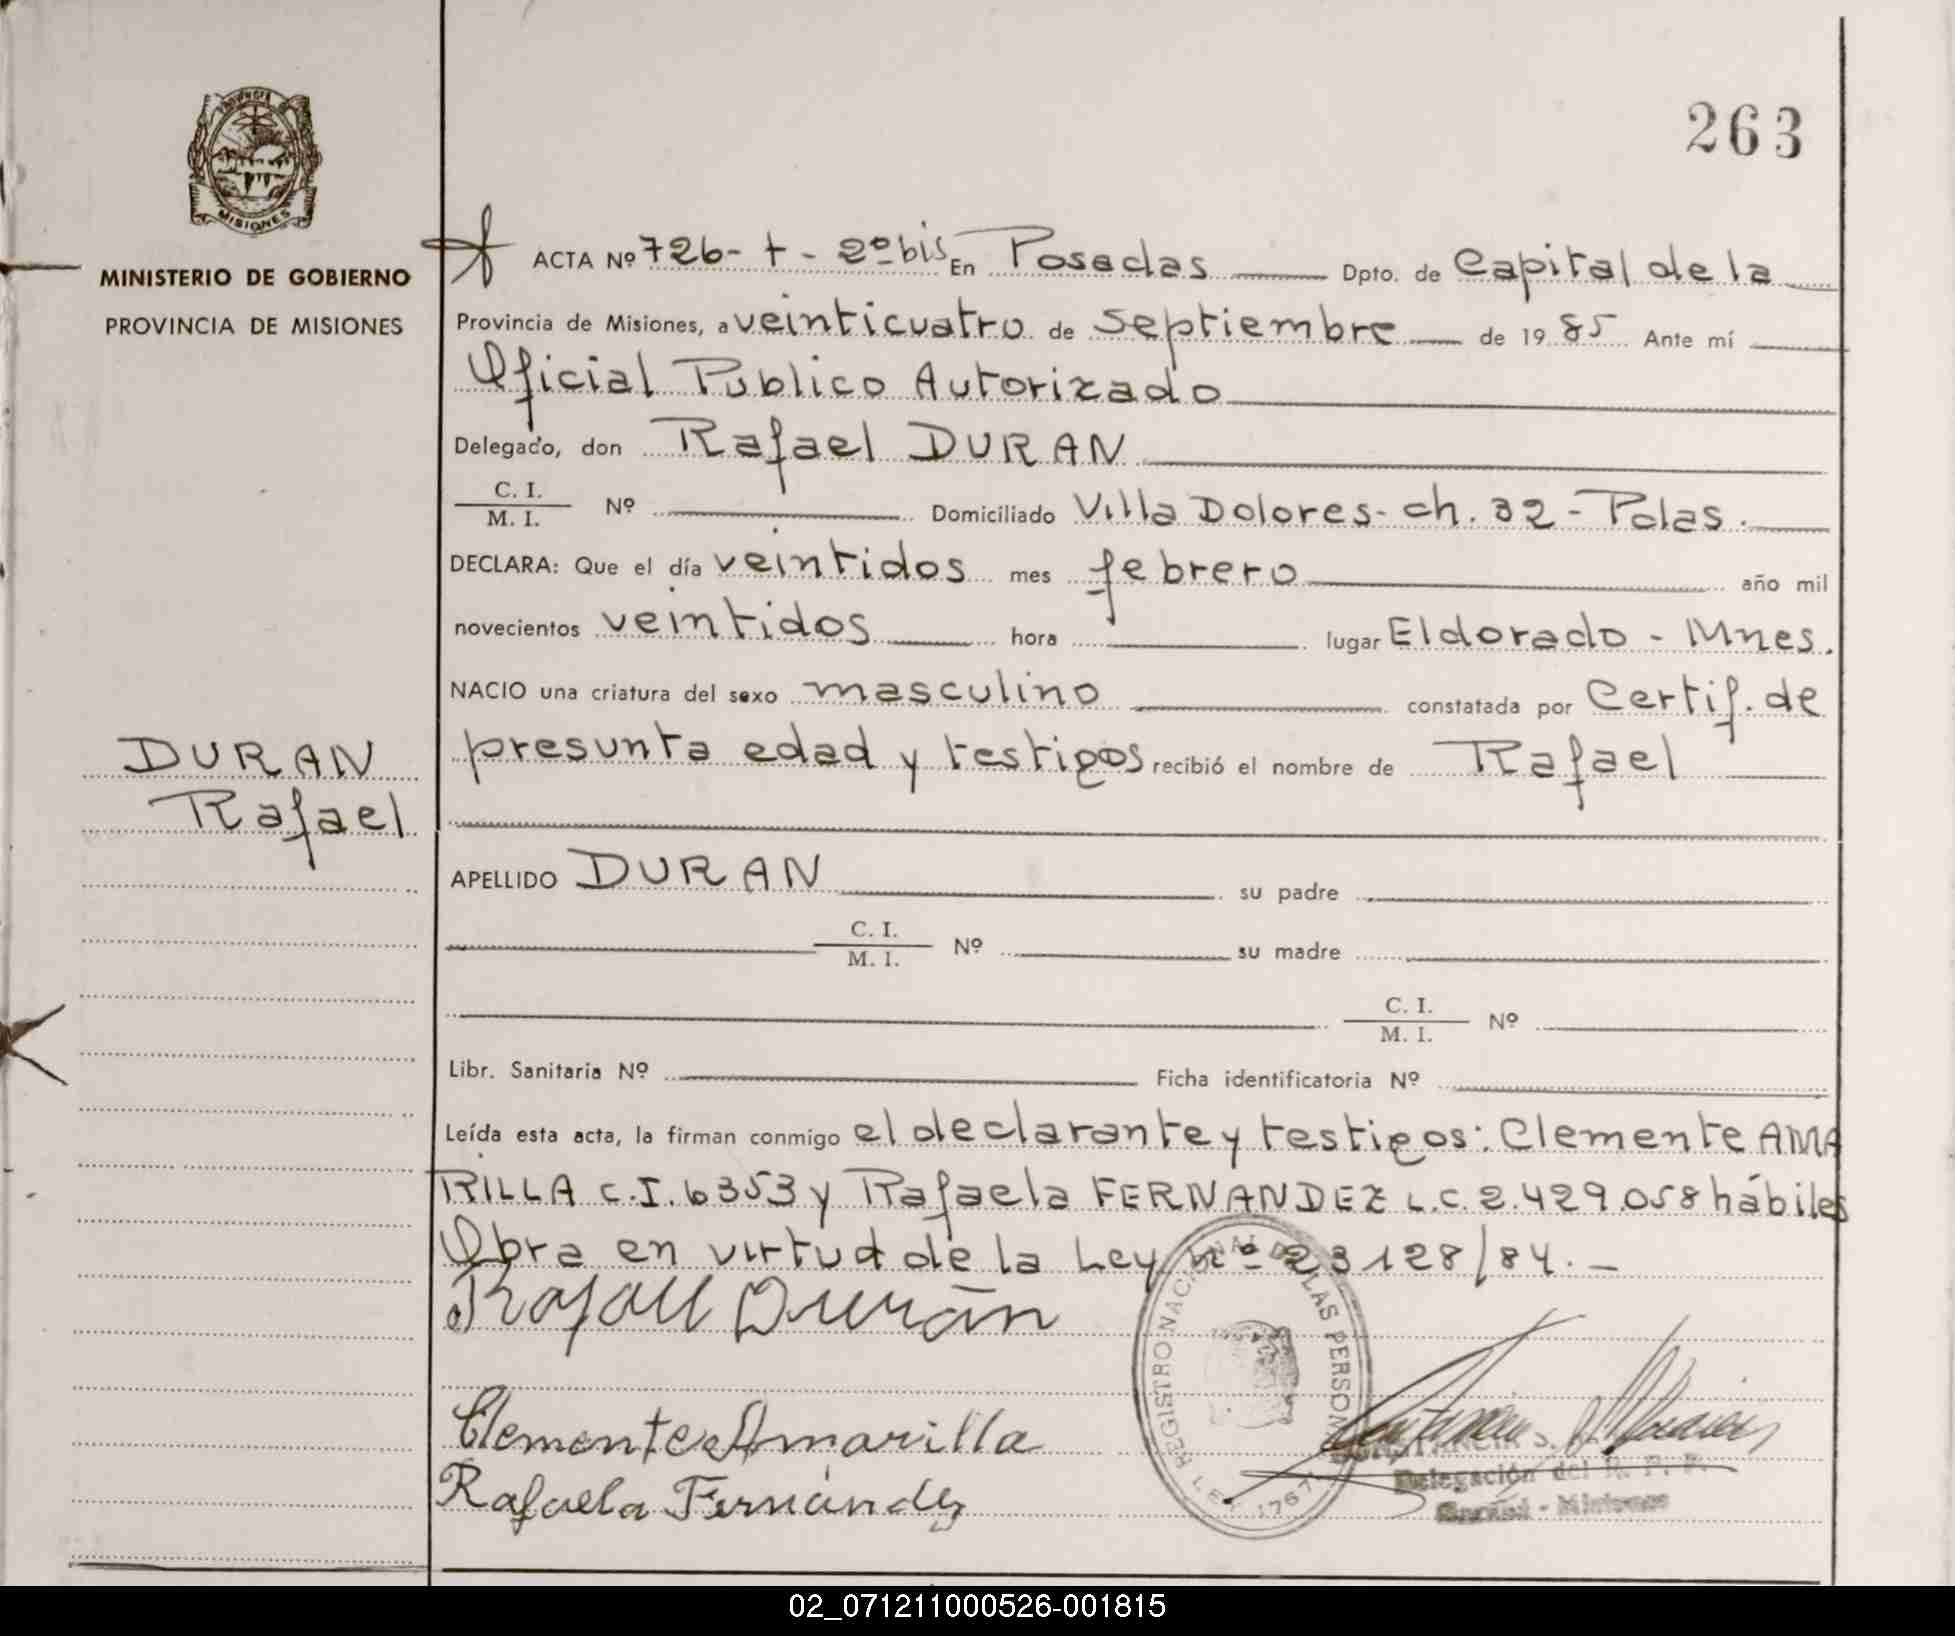 263
PROVINCIA DE
MISIONES
MINISTERIO DE GOBIERNO
PROVINCIA DE MISIONES
ACTA Nº 726- t - 2º bis En Posadas Dpto. de Capital de la
Provincia de Misiones, a veinticuatro de septiembre de 19 85 Ante mí
Oficial Publico Autorizado
Delegado, don Rafael DURAN
C. I.
M. I. Nº Domiciliado Villa Dolores- ch. 32 - Pdas.
DECLARA: Que el día veintidos mes febrero año mil
novecientos veintidos hora lugar Eldorado - Mnes.
NACIO una criatura del sexo masculino constatada por Certif. de
presunta edad y testigos recibió el nombre de Rafael
DURAN
Rafael
APELLIDO DURAN su padre
C. I.
M. I. Nº su madre
C. I.
M. I. Nº
Libr. Sanitaria Nº Ficha identificatoria Nº
Leída esta acta, la firman conmigo el declarante y testigos: Clemente AMA
RILLA C.I. 6353 y Rafaela FERNANDEZ L.C. 2.429.058 hábiles
Obra en virtud de la Ley nº 23128/84.-
Rafael Durán
Clemente Amarilla
Rafaela Fernández
REGISTRO NACIONAL DE LAS PERSONAS
LEY 1767
Delegación del R. P. P.
Misiones
02_071211000526-001815